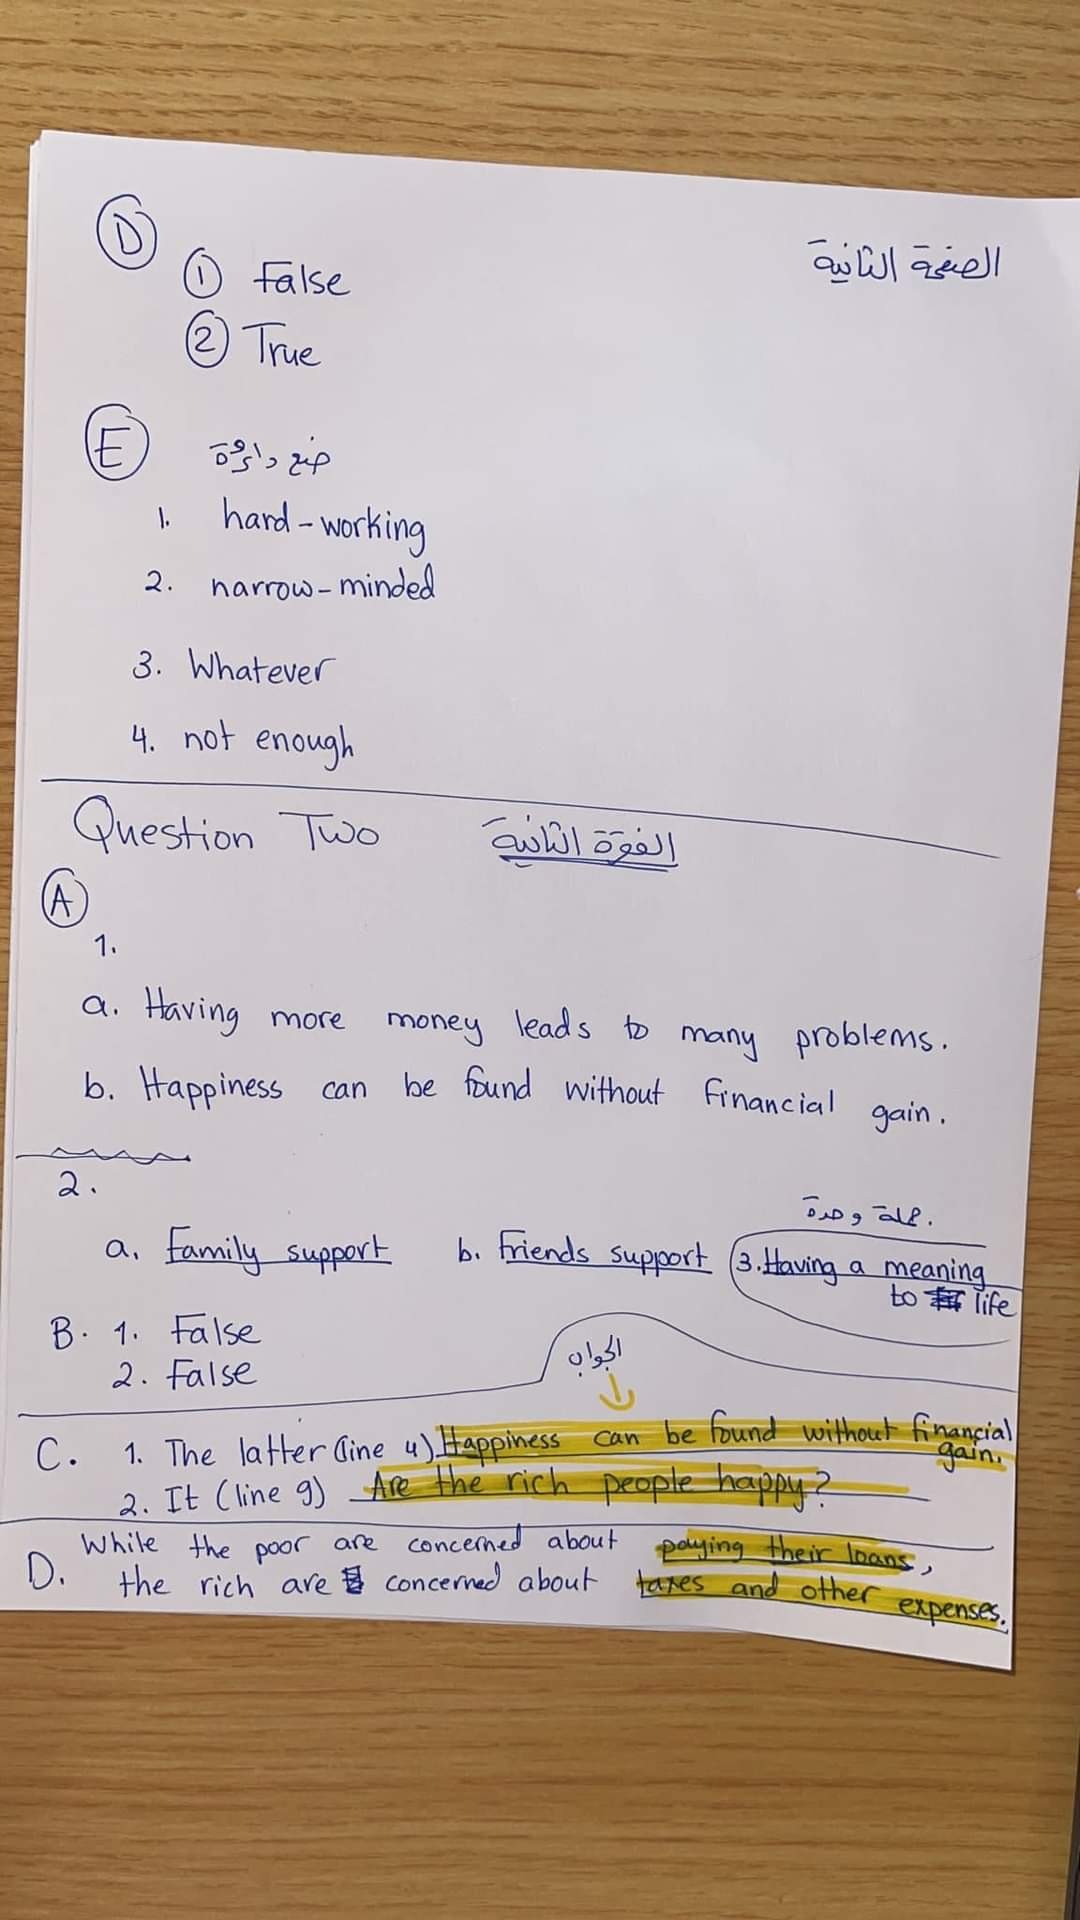 الصفحة الثانية
D
1 False
2 True
E ضع دائرة
1. hard-working
2. narrow-minded
3. Whatever
4. not enough
Question Two الفقرة الثانية
A
1.
a. Having more money leads to many problems.
b. Happiness can be found without financial gain.
2.
a. Family support b. friends support 3. Having a meaning
to life
B. 1. False
2. False
الجواب
C. 1. The latter (line 4) Happiness can be found without financial
gain.
2. It (line 9) Are the rich people happy?
D. While the poor are concerned about paying their loans,
the rich are concerned about taxes and other expenses.